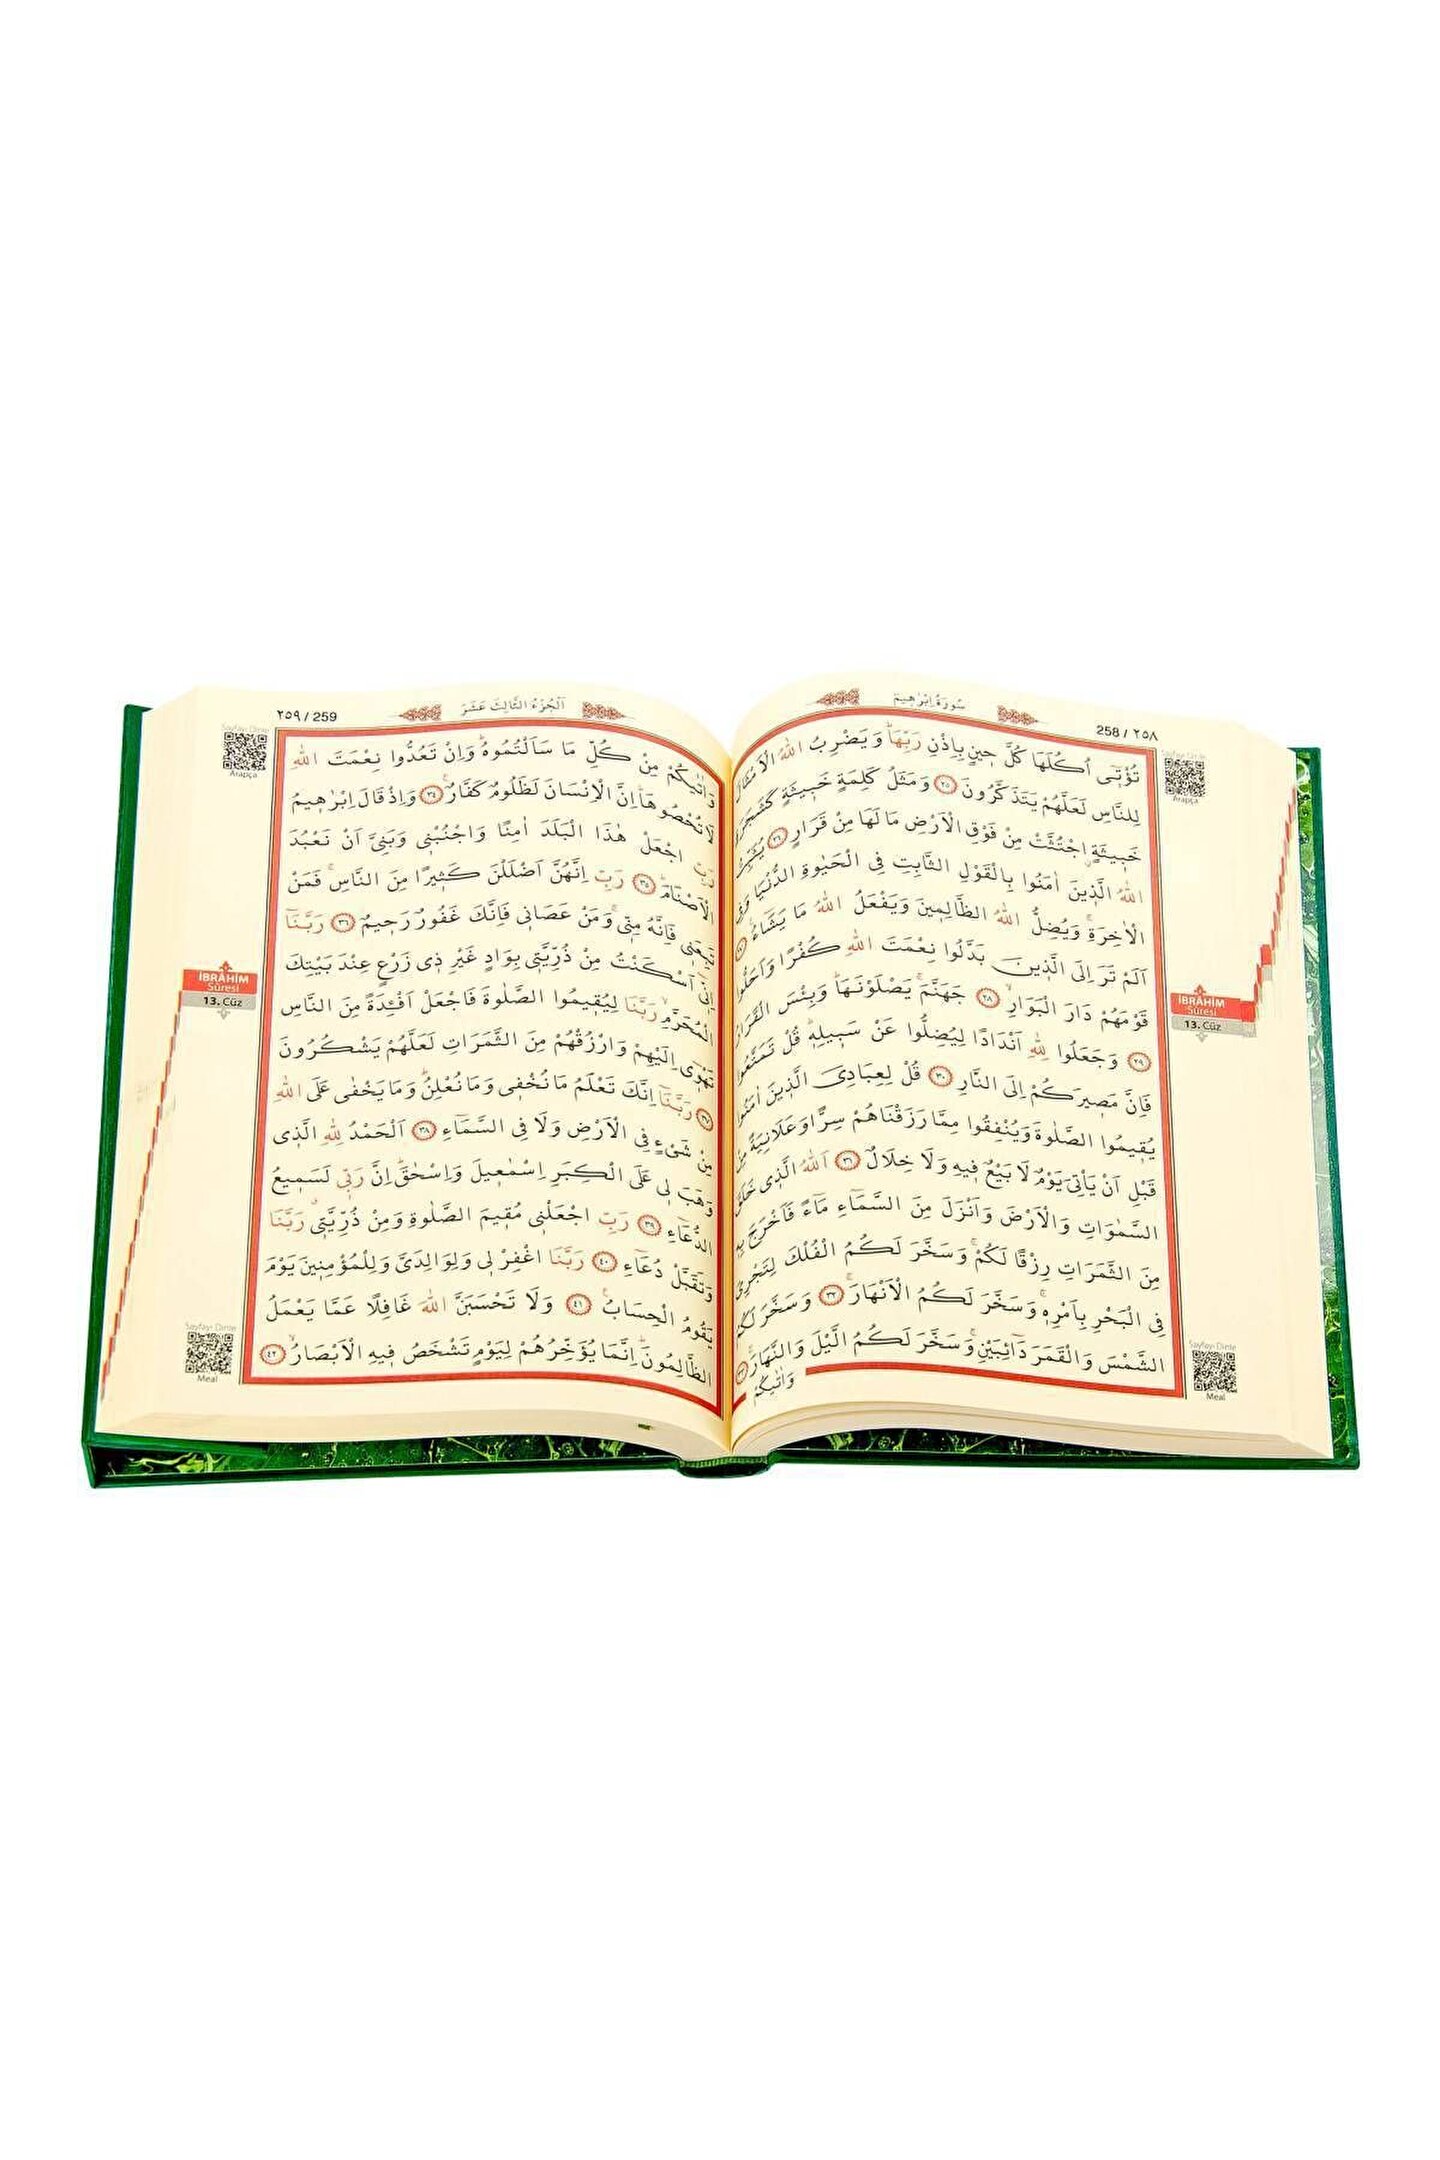 سُورَةُ اِبْرٰه۪يمَ
258 / ٢٥٨
تُؤْت۪ٓي اُكُلَهَا كُلَّ ح۪ينٍ بِاِذْنِ رَبِّهَاۜ وَيَضْرِبُ اللّٰهُ الْاَمْثَالَ
لِلنَّاسِ لَعَلَّهُمْ يَتَذَكَّرُونَ ٢٥ وَمَثَلُ كَلِمَةٍ خَب۪يثَةٍ كَشَجَرَةٍ
خَب۪يثَةٍۨ اجْتُثَّتْ مِنْ فَوْقِ الْاَرْضِ مَا لَهَا مِنْ قَرَارٍ ٢٦ يُثَبِّتُ
اللّٰهُ الَّذ۪ينَ اٰمَنُوا بِالْقَوْلِ الثَّابِتِ فِي الْحَيٰوةِ الدُّنْيَا وَفِي
الْاٰخِرَةِۚ وَيُضِلُّ اللّٰهُ الظَّالِم۪ينَ وَيَفْعَلُ اللّٰهُ مَا يَشَٓاءُ۟ ٢٧
اَلَمْ تَرَ اِلَى الَّذ۪ينَ بَدَّلُوا نِعْمَتَ اللّٰهِ كُفْرًا وَاَحَلُّوا
قَوْمَهُمْ دَارَ الْبَوَارِۙ ٢٨ جَهَنَّمَۚ يَصْلَوْنَهَاۜ وَبِئْسَ الْقَرَارُ
٢٩ وَجَعَلُوا لِلّٰهِ اَنْدَادًا لِيُضِلُّوا عَنْ سَب۪يلِه۪ۜ قُلْ تَمَتَّعُوا
فَاِنَّ مَص۪يرَكُمْ اِلَى النَّارِ ٣٠ قُلْ لِعِبَادِيَ الَّذ۪ينَ اٰمَنُوا
يُق۪يمُوا الصَّلٰوةَ وَيُنْفِقُوا مِمَّا رَزَقْنَاهُمْ سِرًّا وَعَلَانِيَةً مِنْ
قَبْلِ اَنْ يَأْتِيَ يَوْمٌ لَا بَيْعٌ ف۪يهِ وَلَا خِلَالٌ ٣١ اَللّٰهُ الَّذ۪ي خَلَقَ
السَّمٰوَاتِ وَالْاَرْضَ وَاَنْزَلَ مِنَ السَّمَٓاءِ مَٓاءً فَاَخْرَجَ بِه۪
مِنَ الثَّمَرَاتِ رِزْقًا لَكُمْۚ وَسَخَّرَ لَكُمُ الْفُلْكَ لِتَجْرِيَ
فِي الْبَحْرِ بِاَمْرِه۪ۚ وَسَخَّرَ لَكُمُ الْاَنْهَارَۚ ٣٢ وَسَخَّرَ لَكُمُ
الشَّمْسَ وَالْقَمَرَ دَٓائِبَيْنِۚ وَسَخَّرَ لَكُمُ الَّيْلَ وَالنَّهَارَۚ ٣٣
وَاٰتٰيكُمْ
Sayfayı Dinle
Arapça
İBRÂHÎM
Sûresi
13. Cüz
Sayfayı Dinle
Meal
اَلْجُزْءُ الثَّالِثَ عَشَرَ
٢٥٩ / 259
وَاٰتٰيكُمْ مِنْ كُلِّ مَا سَاَلْتُمُوهُۜ وَاِنْ تَعُدُّوا نِعْمَتَ اللّٰهِ
لَا تُحْصُوهَاۜ اِنَّ الْاِنْسَانَ لَظَلُومٌ كَفَّارٌ۟ ٣٤ وَاِذْ قَالَ اِبْرٰه۪يمُ
رَبِّ اجْعَلْ هٰذَا الْبَلَدَ اٰمِنًا وَاجْنُبْن۪ي وَبَنِيَّ اَنْ نَعْبُدَ
الْاَصْنَامَۜ ٣٥ رَبِّ اِنَّهُنَّ اَضْلَلْنَ كَث۪يرًا مِنَ النَّاسِۚ فَمَنْ
تَبِعَن۪ي فَاِنَّهُ مِنّ۪يۚ وَمَنْ عَصَان۪ي فَاِنَّكَ غَفُورٌ رَح۪يمٌ ٣٦ رَبَّنَٓا
اِنّ۪ٓي اَسْكَنْتُ مِنْ ذُرِّيَّت۪ي بِوَادٍ غَيْرِ ذ۪ي زَرْعٍ عِنْدَ بَيْتِكَ
الْمُحَرَّمِۙ رَبَّنَا لِيُق۪يمُوا الصَّلٰوةَ فَاجْعَلْ اَفْـِٔدَةً مِنَ النَّاسِ
تَهْو۪ٓي اِلَيْهِمْ وَارْزُقْهُمْ مِنَ الثَّمَرَاتِ لَعَلَّهُمْ يَشْكُرُونَ
٣٧ رَبَّنَٓا اِنَّكَ تَعْلَمُ مَا نُخْف۪ي وَمَا نُعْلِنُۜ وَمَا يَخْفٰى عَلَى اللّٰهِ
مِنْ شَيْءٍ فِي الْاَرْضِ وَلَا فِي السَّمَٓاءِ ٣٨ اَلْحَمْدُ لِلّٰهِ الَّذ۪ي
وَهَبَ ل۪ي عَلَى الْكِبَرِ اِسْمٰع۪يلَ وَاِسْحٰقَۜ اِنَّ رَبّ۪ي لَسَم۪يعُ
الدُّعَٓاءِ ٣٩ رَبِّ اجْعَلْن۪ي مُق۪يمَ الصَّلٰوةِ وَمِنْ ذُرِّيَّت۪يۗ رَبَّنَا
وَتَقَبَّلْ دُعَٓاءِ ٤٠ رَبَّنَا اغْفِرْ ل۪ي وَلِوَالِدَيَّ وَلِلْمُؤْمِن۪ينَ يَوْمَ
يَقُومُ الْحِسَابُ۟ ٤١ وَلَا تَحْسَبَنَّ اللّٰهَ غَافِلًا عَمَّا يَعْمَلُ
الظَّالِمُونَۜ اِنَّمَا يُؤَخِّرُهُمْ لِيَوْمٍ تَشْخَصُ ف۪يهِ الْاَبْصَارُۙ ٤٢
Sayfayı Dinle
Arapça
İBRÂHÎM
Sûresi
13. Cüz
Sayfayı Dinle
Meal